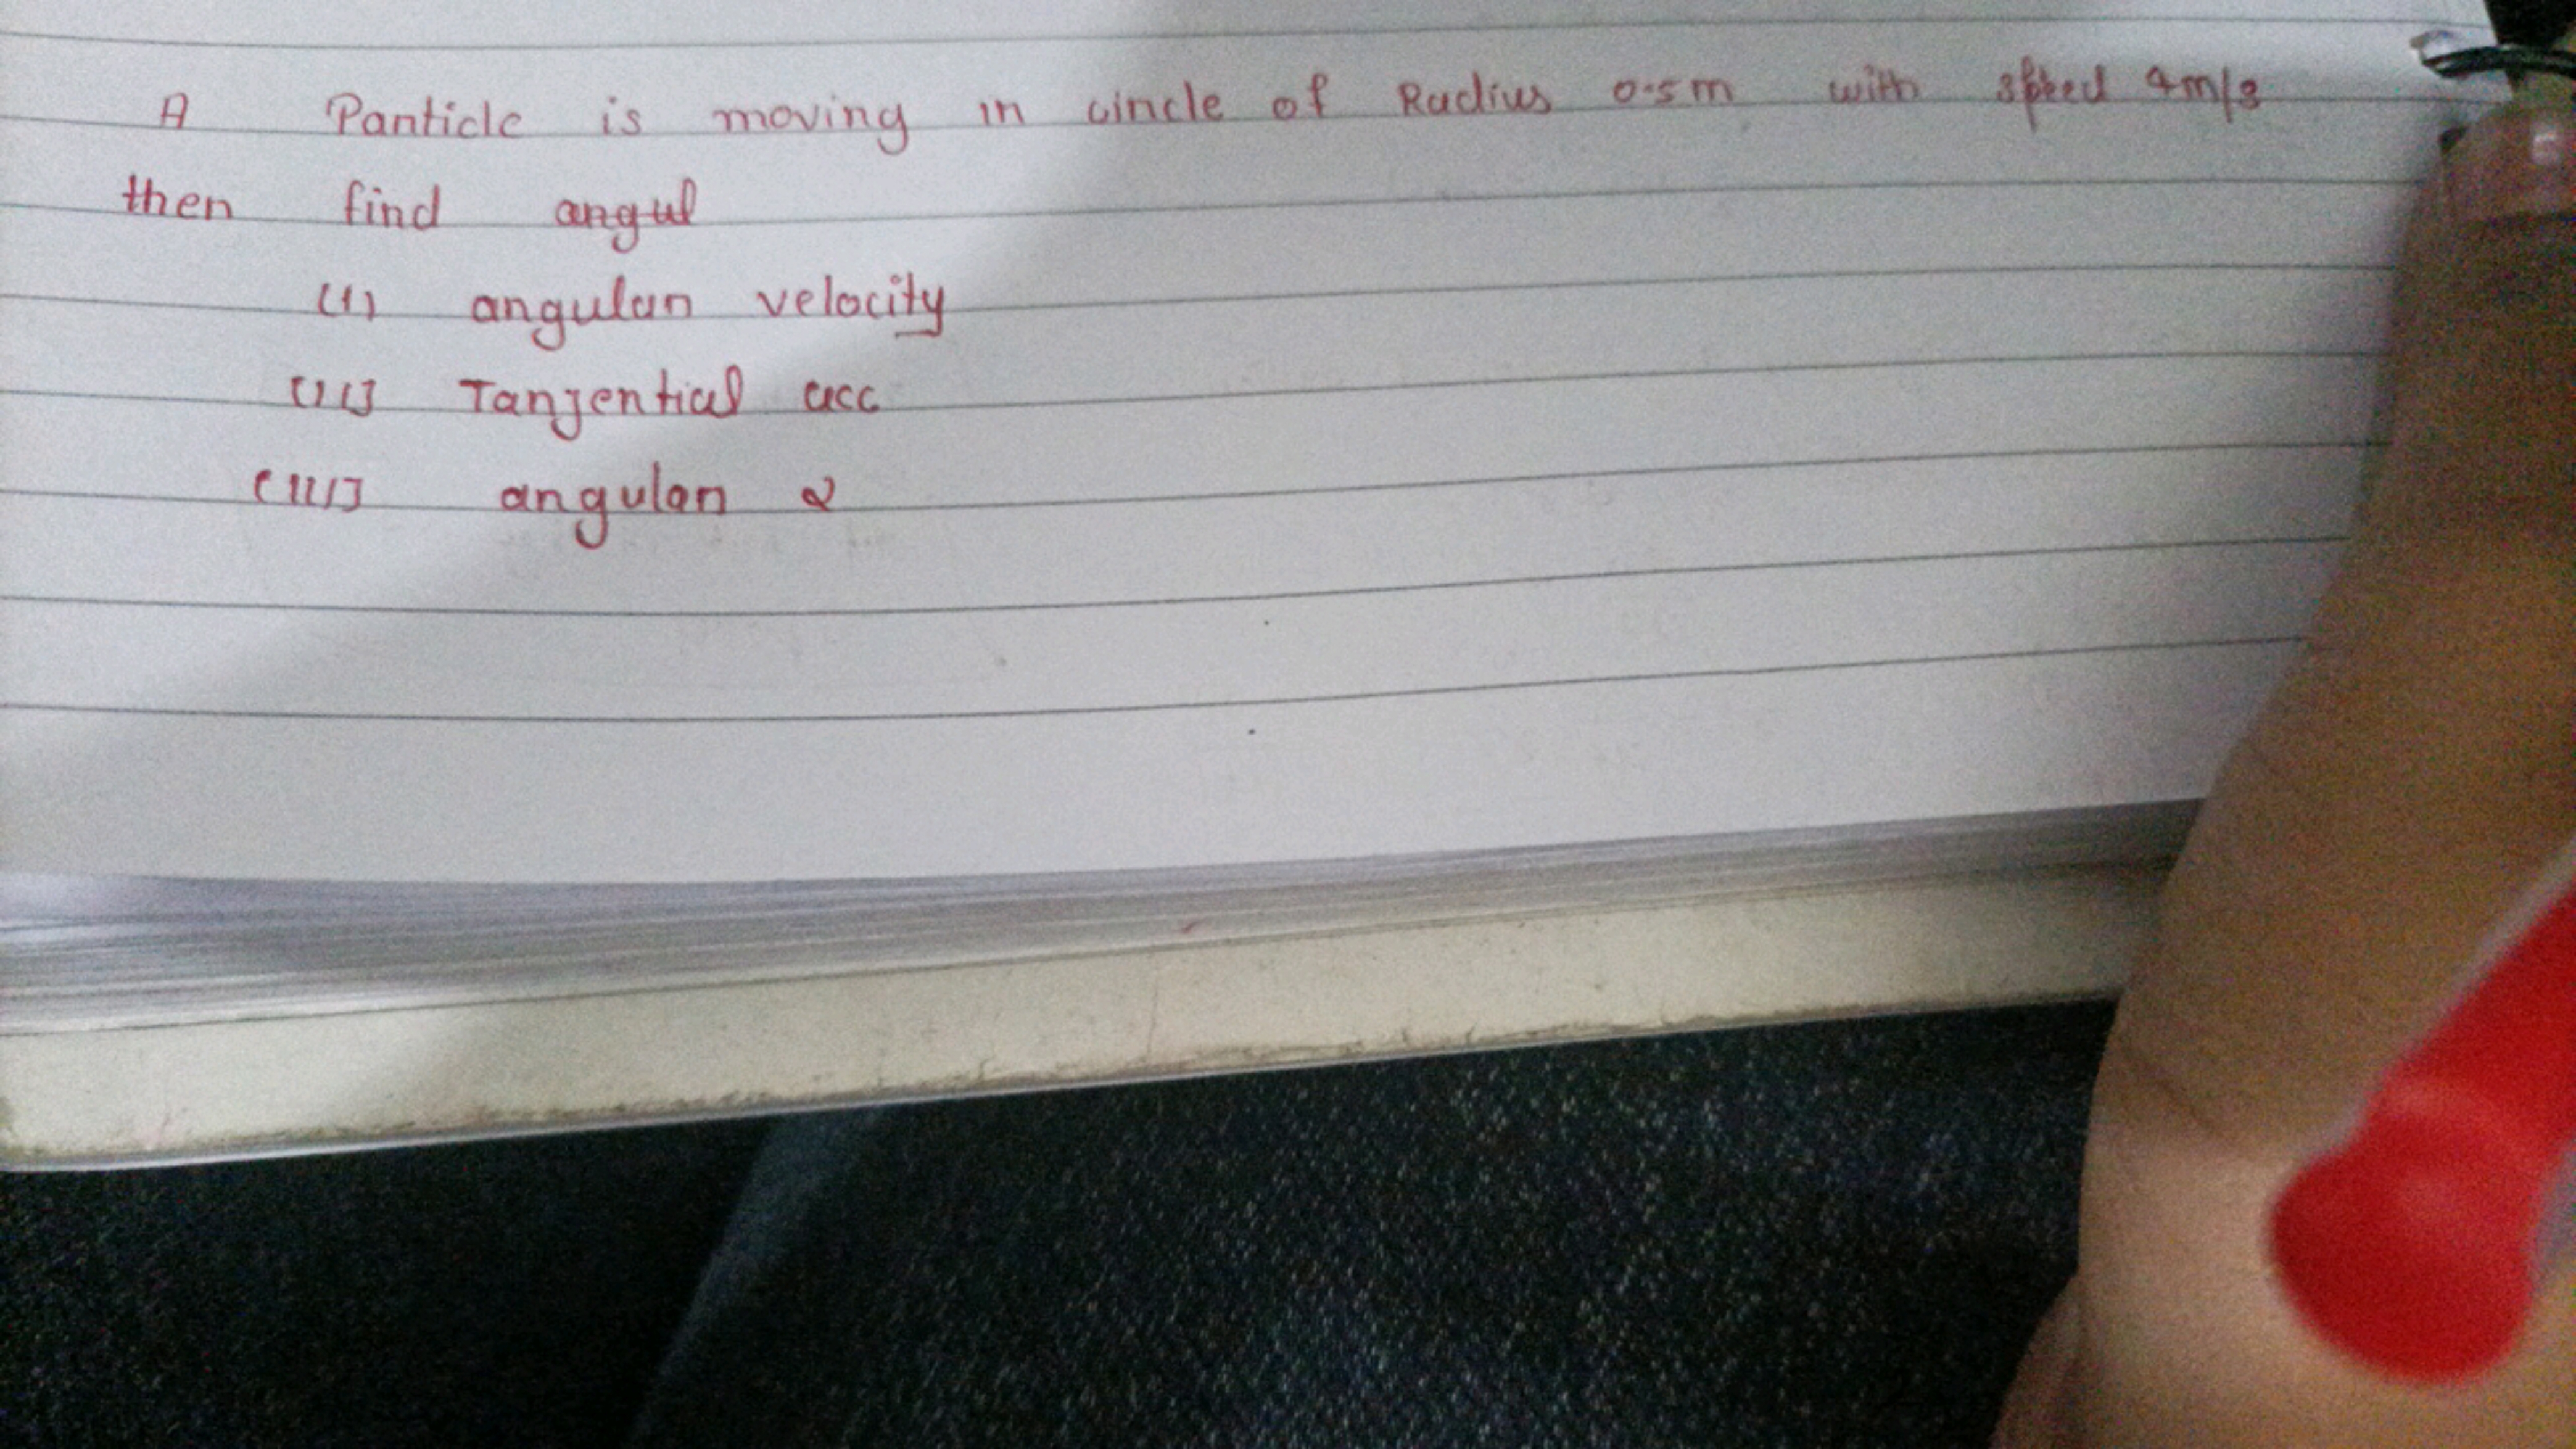 A Particle is moving in circle of Radius 0.5m with speed 4m/s
then find angul
(i) angular velocity
(ii) Tanjential acc
(iii) angular α